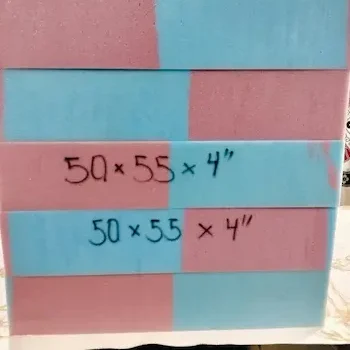 50 × 55 × 4"
50 × 55 × 4"